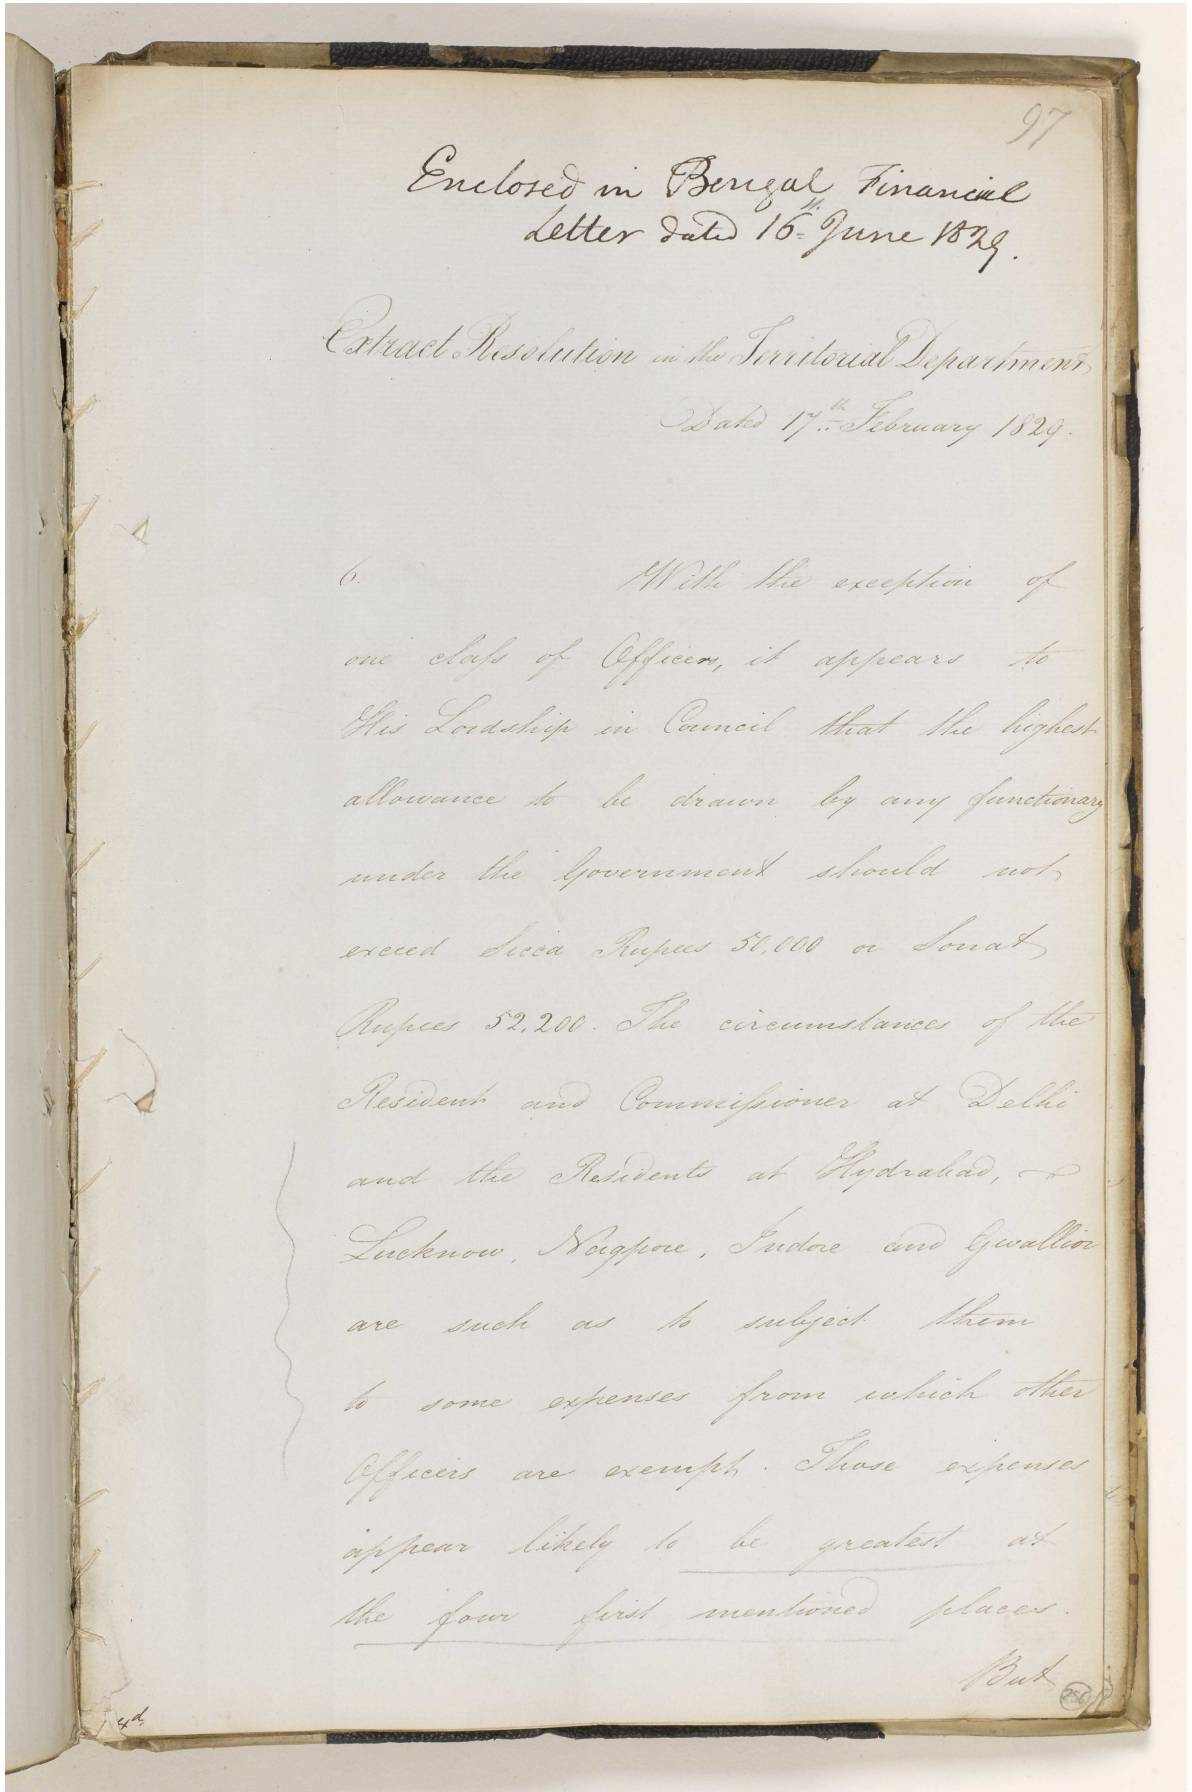 97
Enclosed in Bengal Financial
Letter dated 16th June 1829.
Extract Resolution in the Territorial Department
Dated 17th February 1829.
6. With the exception of
one class of Officers, it appears to
His Lordship in Council that the highest
allowance to be drawn by any functionary
under the Government should not
exceed Sicca Rupees 50,000 or Sonat
Rupees 52,200. The circumstances of the
Resident and Commissioner at Delhi
and the Residents at Hydrabad,
Lucknow, Nagpore, Indore and Gwallior
are such as to subject them
to some expenses from which other
Officers are exempt. Those expenses
appear likely to be greatest at
the four first mentioned places.
But
256